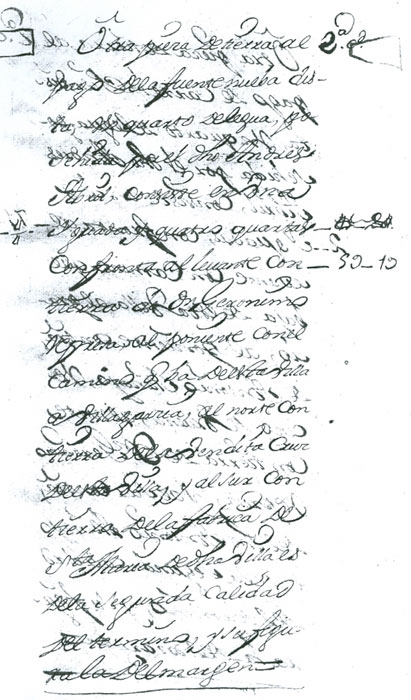 Otra pieza de tierra al 2ª
pago de la fuente nueba dis-
ta, un quarto de legua, po
por el dho Andres
consiste en una
Yguada y quatro quartas
Confronta al levante con 
tierra de Dn Geronimo
al poniente con el
camino q ba de esta Villa
a Villagarzia, al norte con
tierra de la bendita Cruz
de esta Villa, y al sur con
tierra de la fabrica de
Sta Maria de dha Villa es
de la segunda Calidad
del termino, y su figu-
ra la del margen